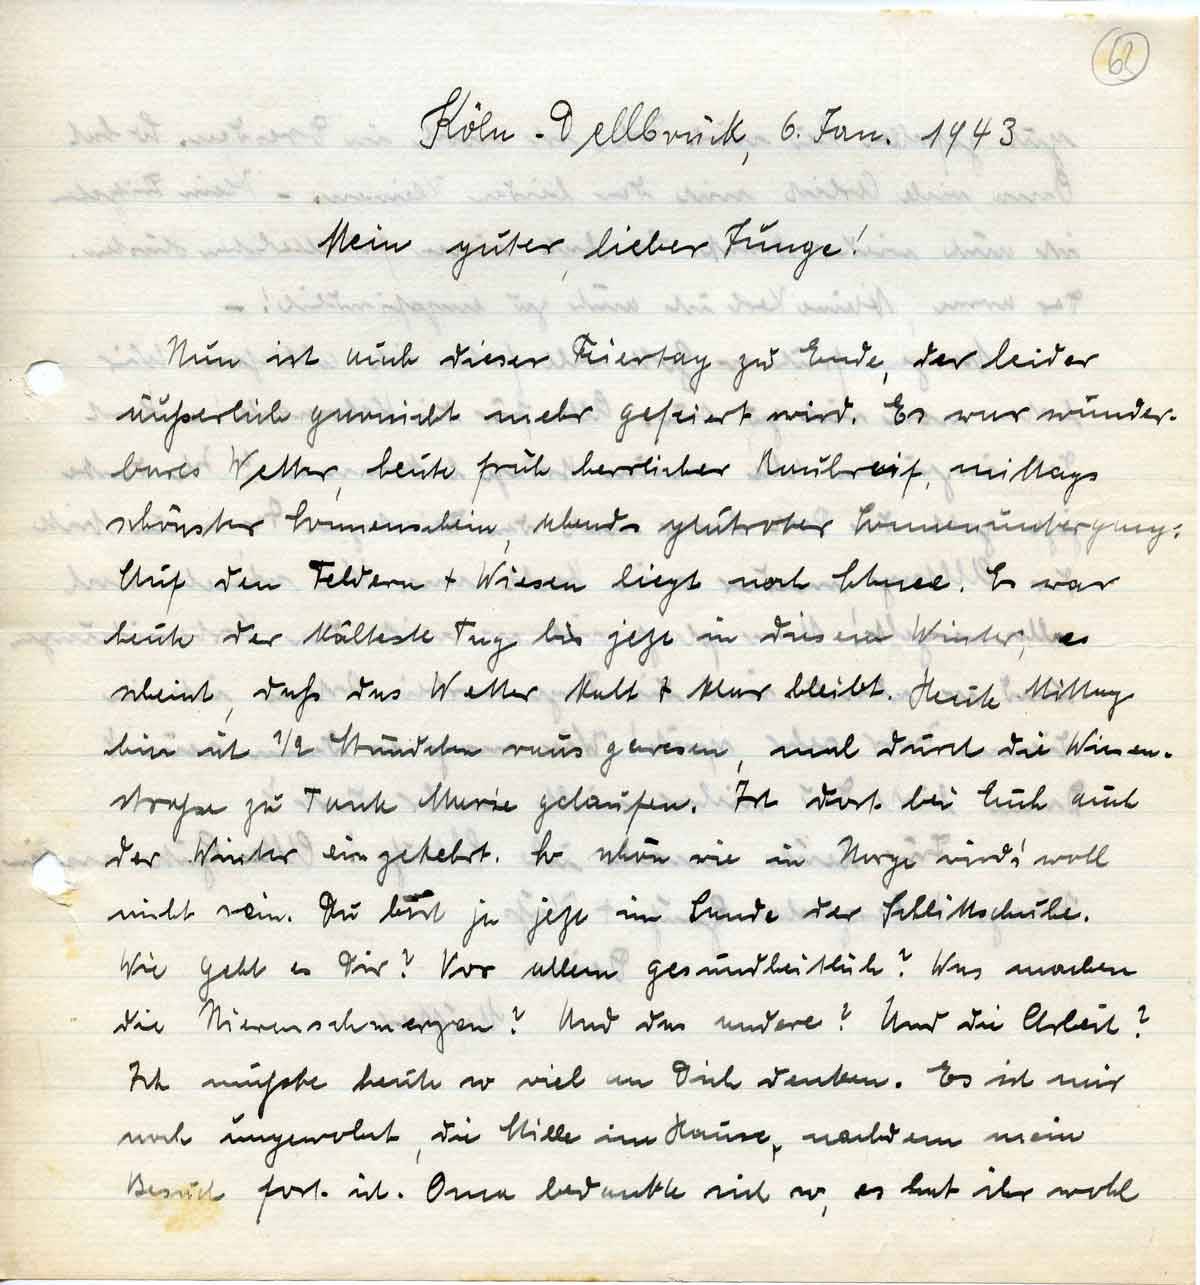 62
Köln-Dellbrück, 6. Jan. 1943
Mein guter, lieber Junge!
Nun ist auch dieser Feiertag zu Ende, der leider
äußerlich garnicht mehr gefeiert wird. Es war wunder-
bares Wetter, heute früh herrlicher Rauhreif, mittags
schönster Sonnenschein, abends glutroter Sonnenuntergang.
Auf den Feldern + Wiesen liegt noch Schnee. Es war
heute der kälteste Tag bis jetzt in diesem Winter, es
scheint, daß das Wetter kalt + klar bleibt. Heute Mittag
bin ich 1/2 Stündchen raus gewesen, mal durch die Wiesen-
straße zu Tante Marie gelaufen. Ist dort bei Euch auch
der Winter eingekehrt. So schön wie in Norge wird's woll
nicht sein. Du bist ja jetzt im Lande der Schlittschuhe.
Wie geht es Dir? Vor allem gesundheitlich? Was machen
die Nierenschmerzen? Und das andere? Und die Arbeit?
Ich mußte heute so viel an Dich denken. Es ist mir
noch ungewohnt, die Stille im Hause, nachdem mein
Besuch fort ist. Oma bedankte sich so, es hat ihr wohl